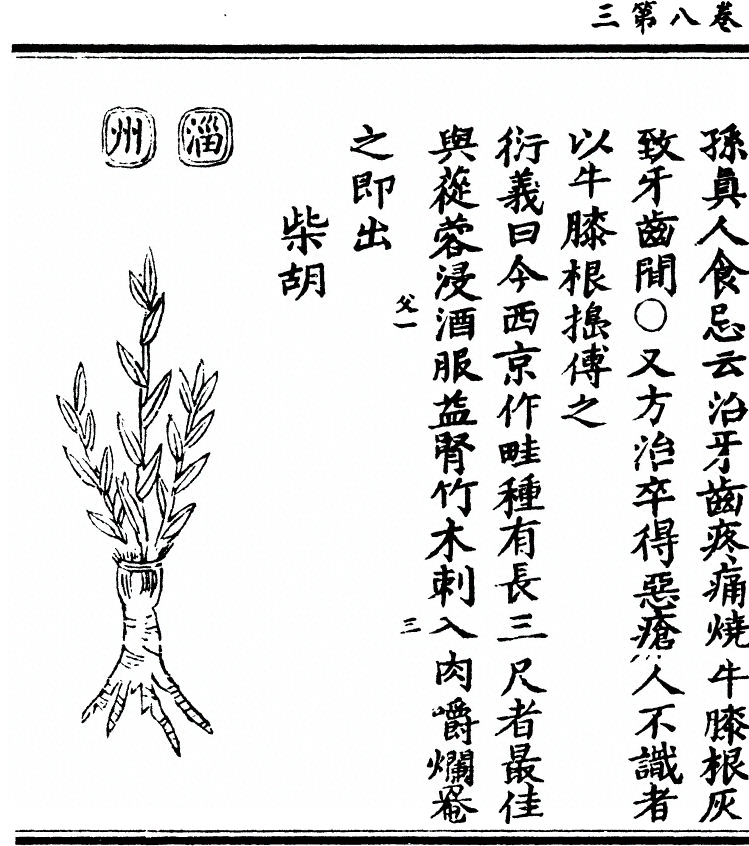 卷八第三
孫眞人食忌云治牙齒疼痛燒牛膝根灰
致牙齒間○又方治卒得惡瘡人不識者
以牛膝根搗傅之
衍義曰今西京作畦種有長三尺者最佳
與蓯蓉浸酒服益腎竹木刺入肉嚼爛罨
父一
三
之即出
柴胡
淄州